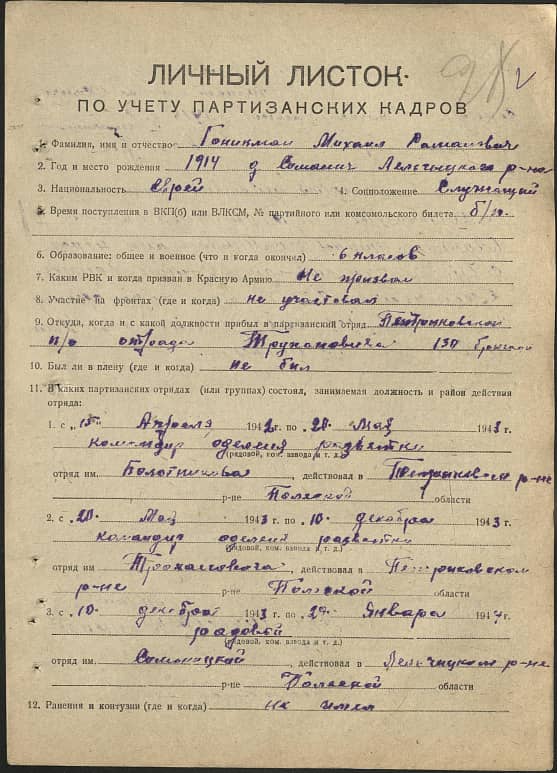 ЛИЧНЫЙ ЛИСТОК
ПО УЧЕТУ ПАРТИЗАНСКИХ КАДРОВ
1. Фамилия, имя и отчество Гоникман Михаил
2. Год и место рождения 1914 д Симонич Лельчицкого р-на
3. Национальность Еврей 4. Соцположение Служащий
5. Время поступления в ВКП(б) или ВЛКСМ, № партийного или комсомольского билета б/п.
6. Образование: общее и военное (что и когда окончил) 6 класов
7. Каким РВК и когда призван в Красную Армию Не призван
8. Участие на фронтах (где и когда) не участвовал
9. Откуда, когда и с какой должности прибыл в партизанский отряд
п/о отряда 130 бригады
10. Был ли в плену (где и когда) не был
11. В каких партизанских отрядах (или группах) состоял, занимаемая должность и район действия
отряда:
1. с „15" Апреля 1942 г. по 20 Май 1943 г.
командир оделения разветки
(рядовой, ком. взвода и т. д.)
отряд им. Болотникова, действовал в р-не
р-не Полеской области
2. с 20 Май 1943 г. по 10 декабря 1943 г.
командир оделения разветки
(рядовой, ком. взвода и т. д.)
отряд им , действовал в Петриковском
р-не р-не Полеской области
3. с 10 декабря 1943 г. по 29 Января 1944 г.
радовой
(рядовой, ком. взвода и т. д.)
отряд им. , действовал в Лельчицком р-не
р-не Полеской области
12. Ранения и контузии (где и когда) не имел